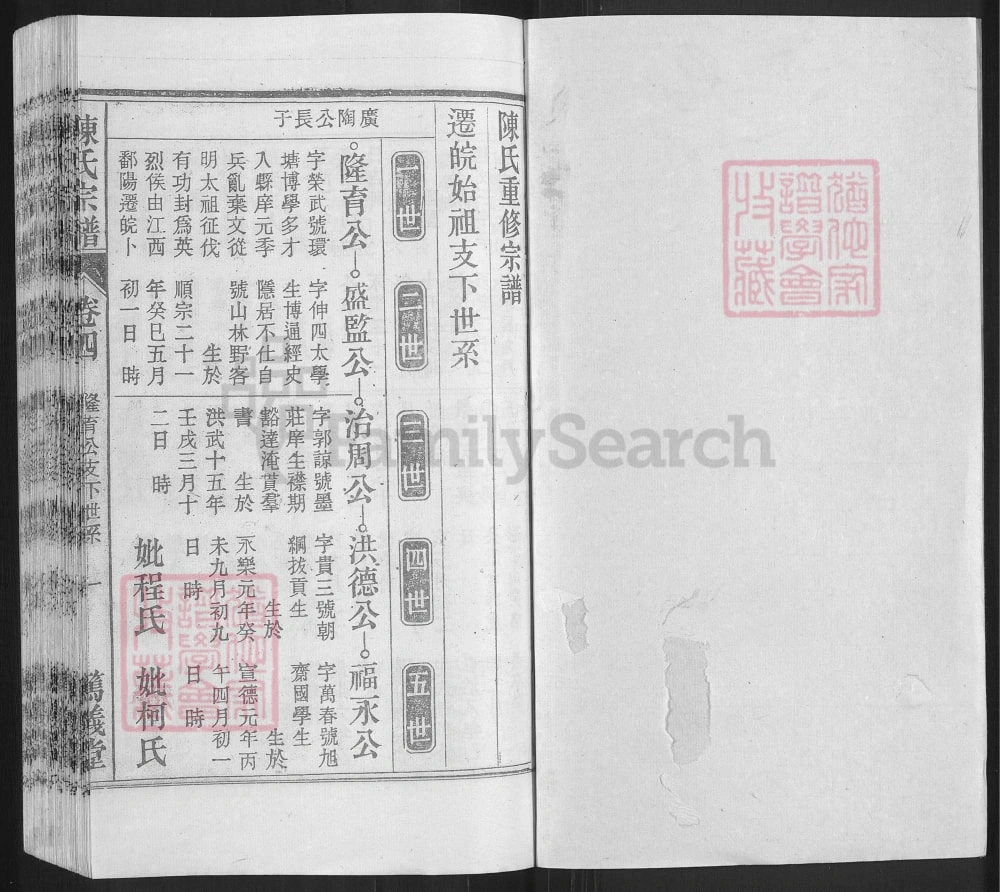 陳氏重修宗譜
遷皖始祖支下世系
一世
二世
三世
四世
五世
廣陶公長子
隆育公
字榮武號環
塘博學多才
入縣庠元季
兵亂棄文從
明太祖征伐
有功封爲英
烈侯由江西
鄱陽遷皖卜
盛監公
字伸四太學
生博通經史
隱居不仕自
號山林野客
生於
順宗二十一
年癸巳五月
初一日 時
治周公
字郭諒號墨
莊庠生襟期
豁達淹貫羣
書 生於
洪武十五年
壬戌三月十
二日 時
洪德公
字貴三號朝
綱拔貢生
生於
永樂元年癸
未九月初九
日 時
妣程氏
福永公
字萬春號旭
齋國學生
生於
宣德元年丙
午四月初一
日 時
妣柯氏
陳氏宗譜
卷四
隆育公支下世系
一
篤義堂
猶他家
譜學會
收藏
FamilySearch